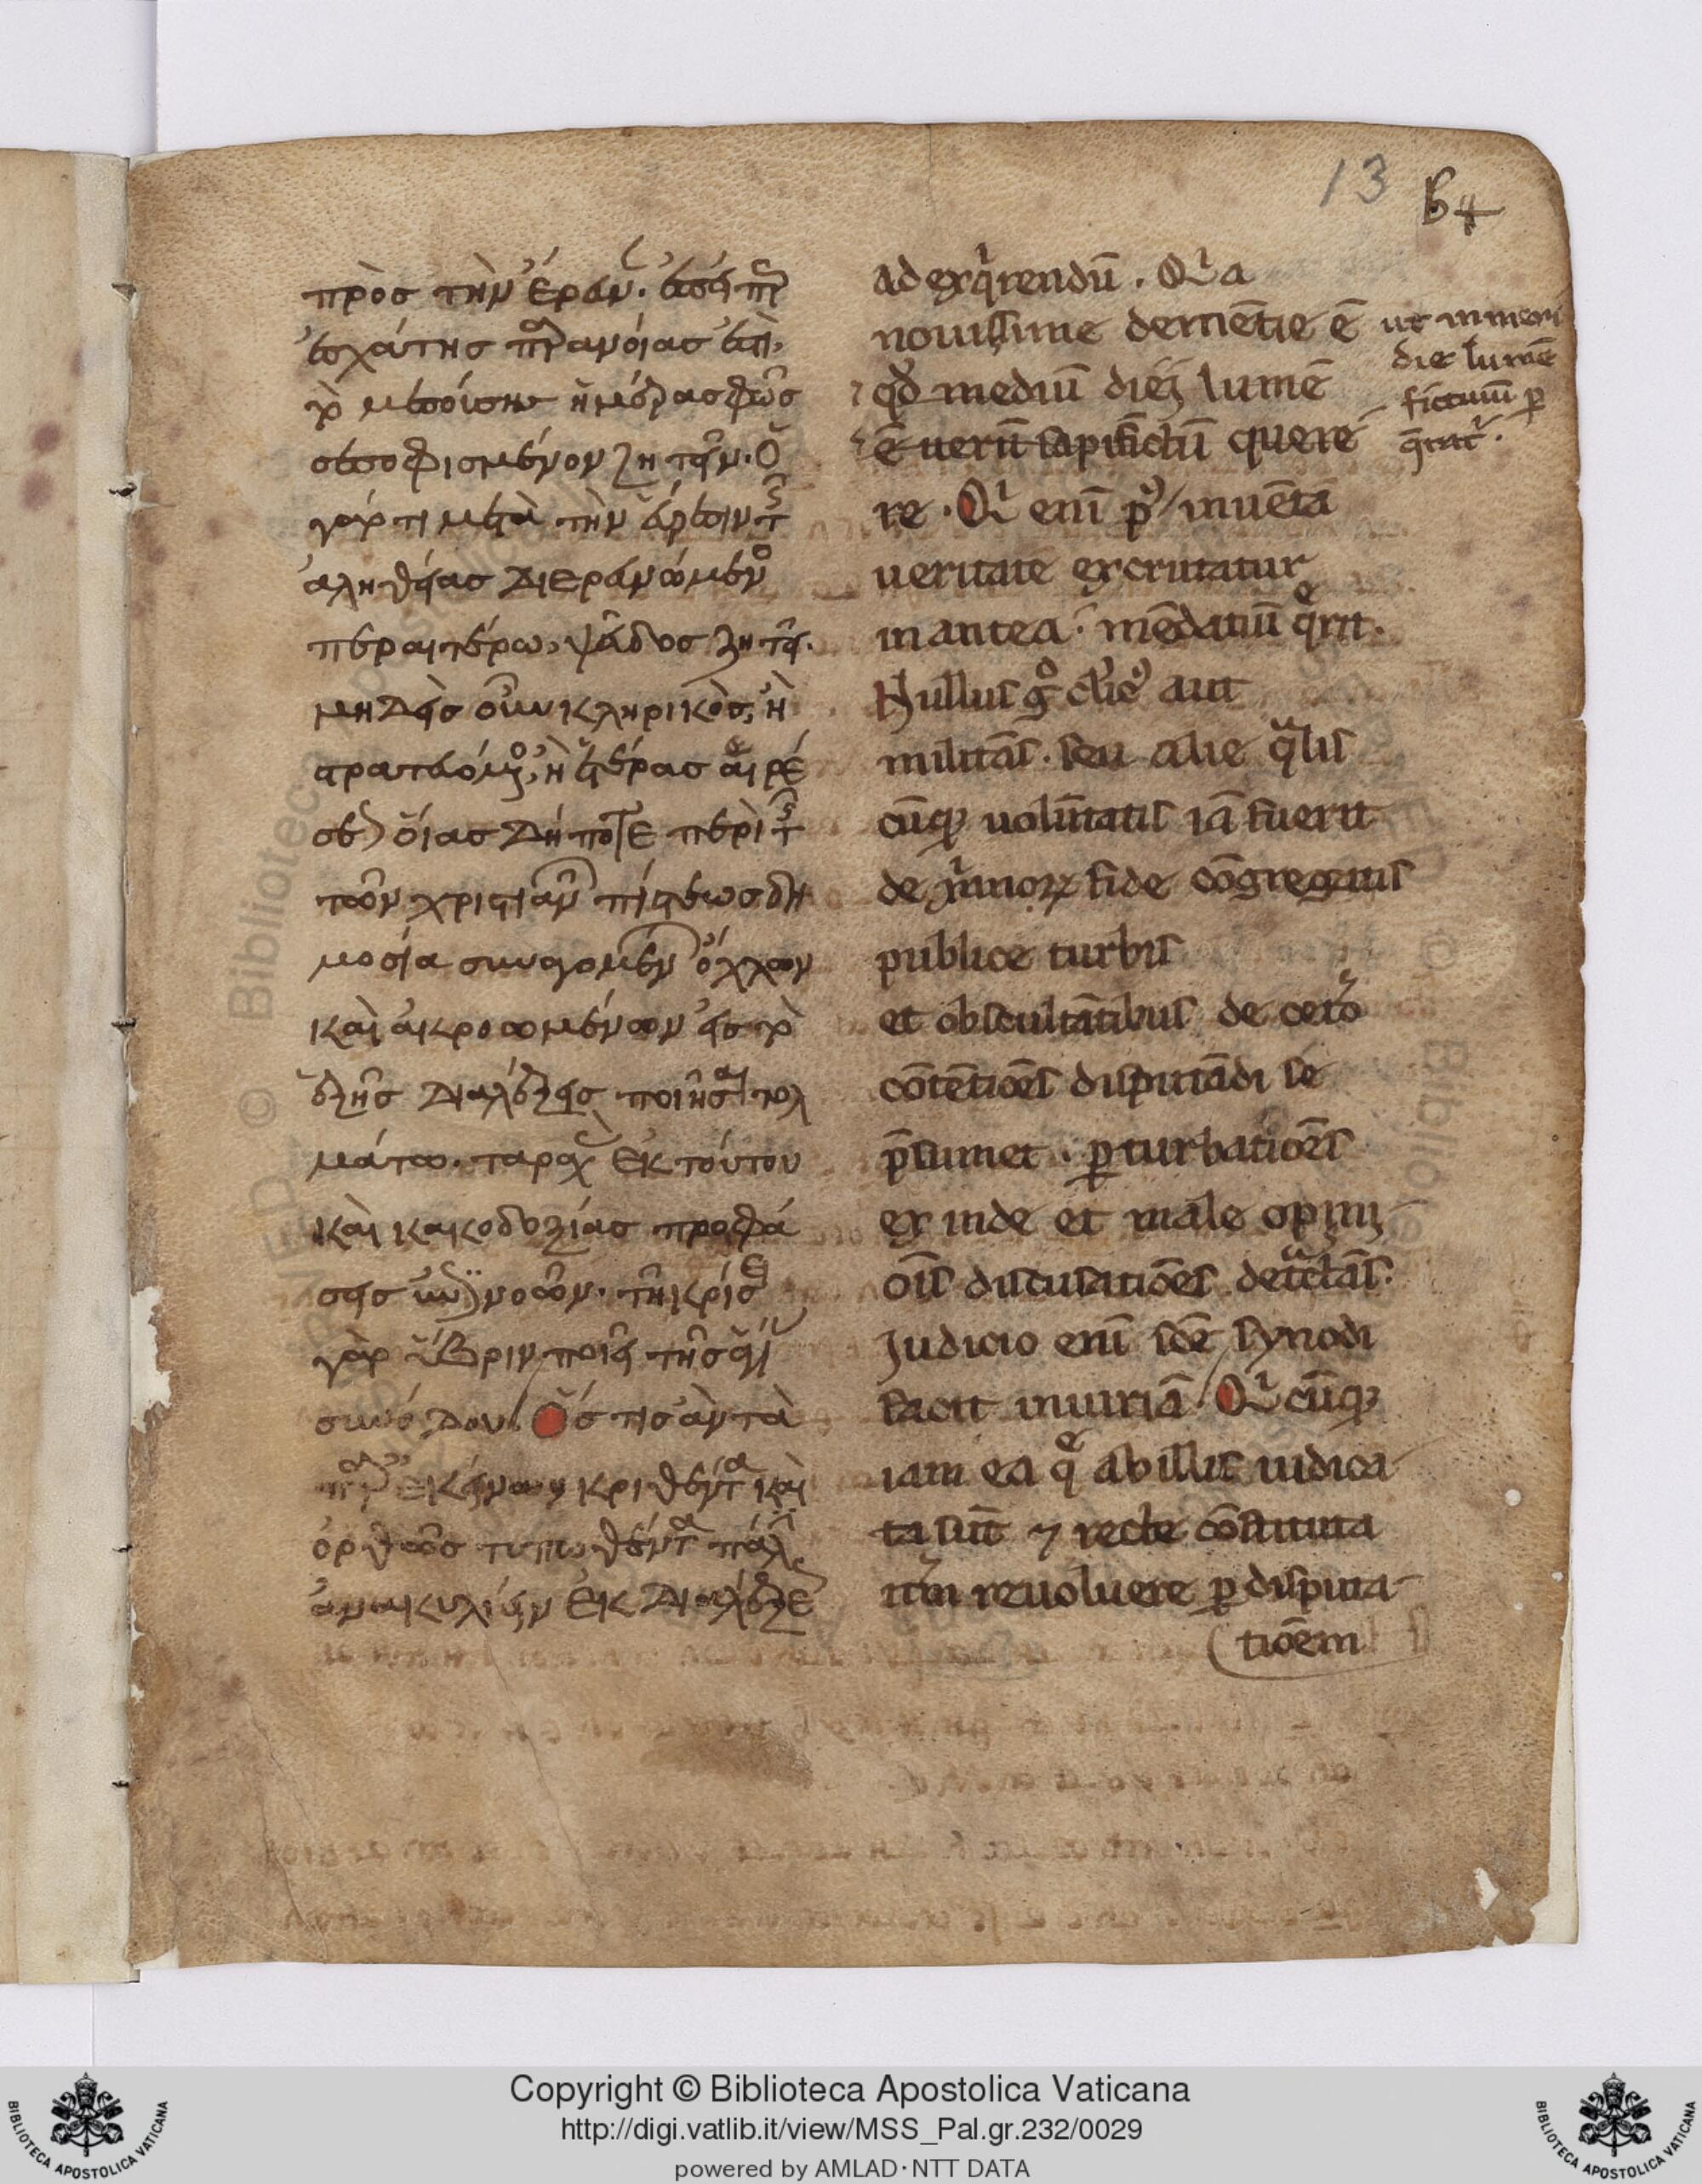 13
πρὸς τὴν ἔρευναν. ἐπεὶ παρ
ἐσχάτης παρανοίας ἐστὶ
μεσούσης ἡμέρας φῶς
σεσοφισμένον ζητεῖν. Ὁ
γάρ τι μετὰ τὴν εὕρεσιν τῆς
ἀληθείας διερευνώμενος
περαιτέρω, ψεῦδος ζητεῖ.
μηδεὶς οὖν κληρικὸς, ἢ
στρατευόμενος, ἢ ἑτέρας αἱρέ
σεως οἵας δήποτε περὶ τῆς
τῶν χριστιανῶν πίστεως δη
μοσία συναγομένων ὄχλων
καὶ ἀκροωμένων εἰς τὸ
ἑξῆς διαλέξεις ποιῆσαι τολ
μάτω. ταραχὰς ἐκ τούτου
καὶ κακοδοξίας προφά
σεις ἐπινοῶν. τῇ κρίσει
γὰρ ὕβριν ποιεῖ τῆς ἁγίας
συνόδου. Ὅστις ἂν τὰ
παρ ἐκείνων κριθέντα καὶ
ὀρθῶς τυπωθέντα πάλιν
ἀνακυλίειν ἐκ διαλέξε
ad exq̇rendū. Qia
nouissime dementie ē
qd mediū diei lumē
ē uerū sapifictū quere
re. Qi eni p9 inuēta
ueritate excrutatur
in antea. mēdatiū q̄rit.
Nullus gͦ clic9 aut
militās. seu alie qalis
cūq uolūtatis iā fuerit
de xp̄ianoꝝ fide cōgregatis
publice turbis
et obscultātibus de cetͦo
cōtētiōes disputādi se
p̄sumet. ꝑturbatiōes
ex inde et male opini
ōis discusatiōes detͣctās.
Iudicio eni scē synodi
facit iniuriā Qi cūq
iam ea q̄ ab illis iudica
ta sūt ⁊ recte cōstituta
itm̄ reuoluere ꝑ disputa
tiōem
ut in meri
die lumē
fictum ꝑ
q̄rat.
Copyright © Biblioteca Apostolica Vaticana
http://digi.vatlib.it/view/MSS_Pal.gr.232/0029
powered by AMLAD·NTT DATA
BIBLIOTECA APOSTOLICA VATICANA
BIBLIOTECA APOSTOLICA VATICANA